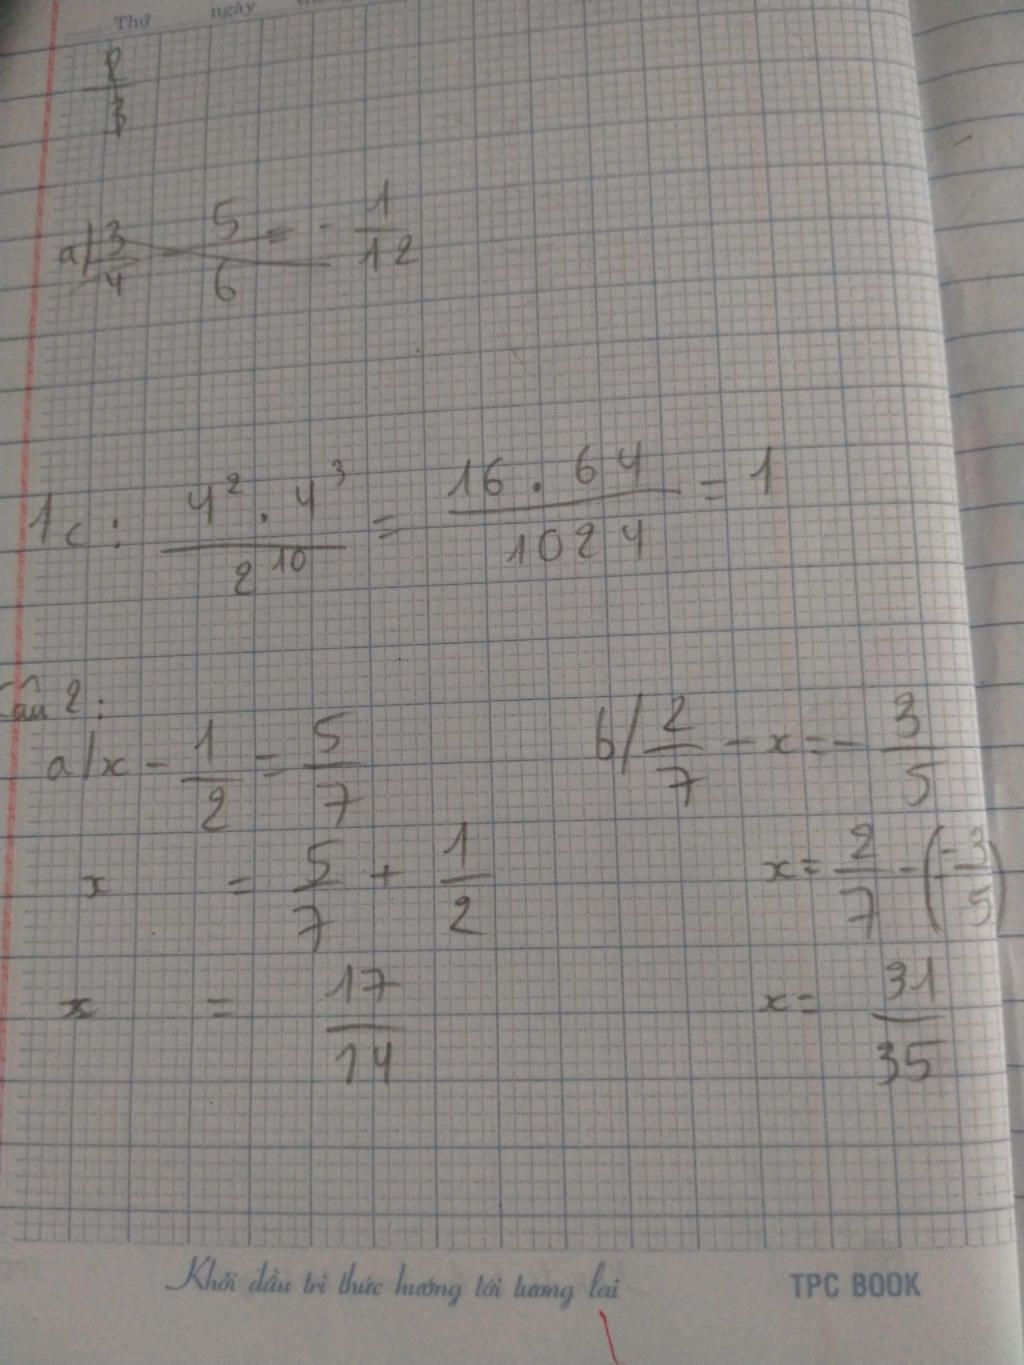 Thứ ngày
a) 3/4 5/6 = - 1/12
1c: 4² . 4³ / 2¹⁰ = 16 . 64 / 1024 = 1
Câu 2:
a/ x - 1/2 = 5/7 b/ 2/7 - x = - 3/5
x = 5/7 + 1/2 x = 2/7 - (-3/5)
x = 17/14 x = 31/35
Khởi đầu tri thức hướng tới tương lai TPC BOOK